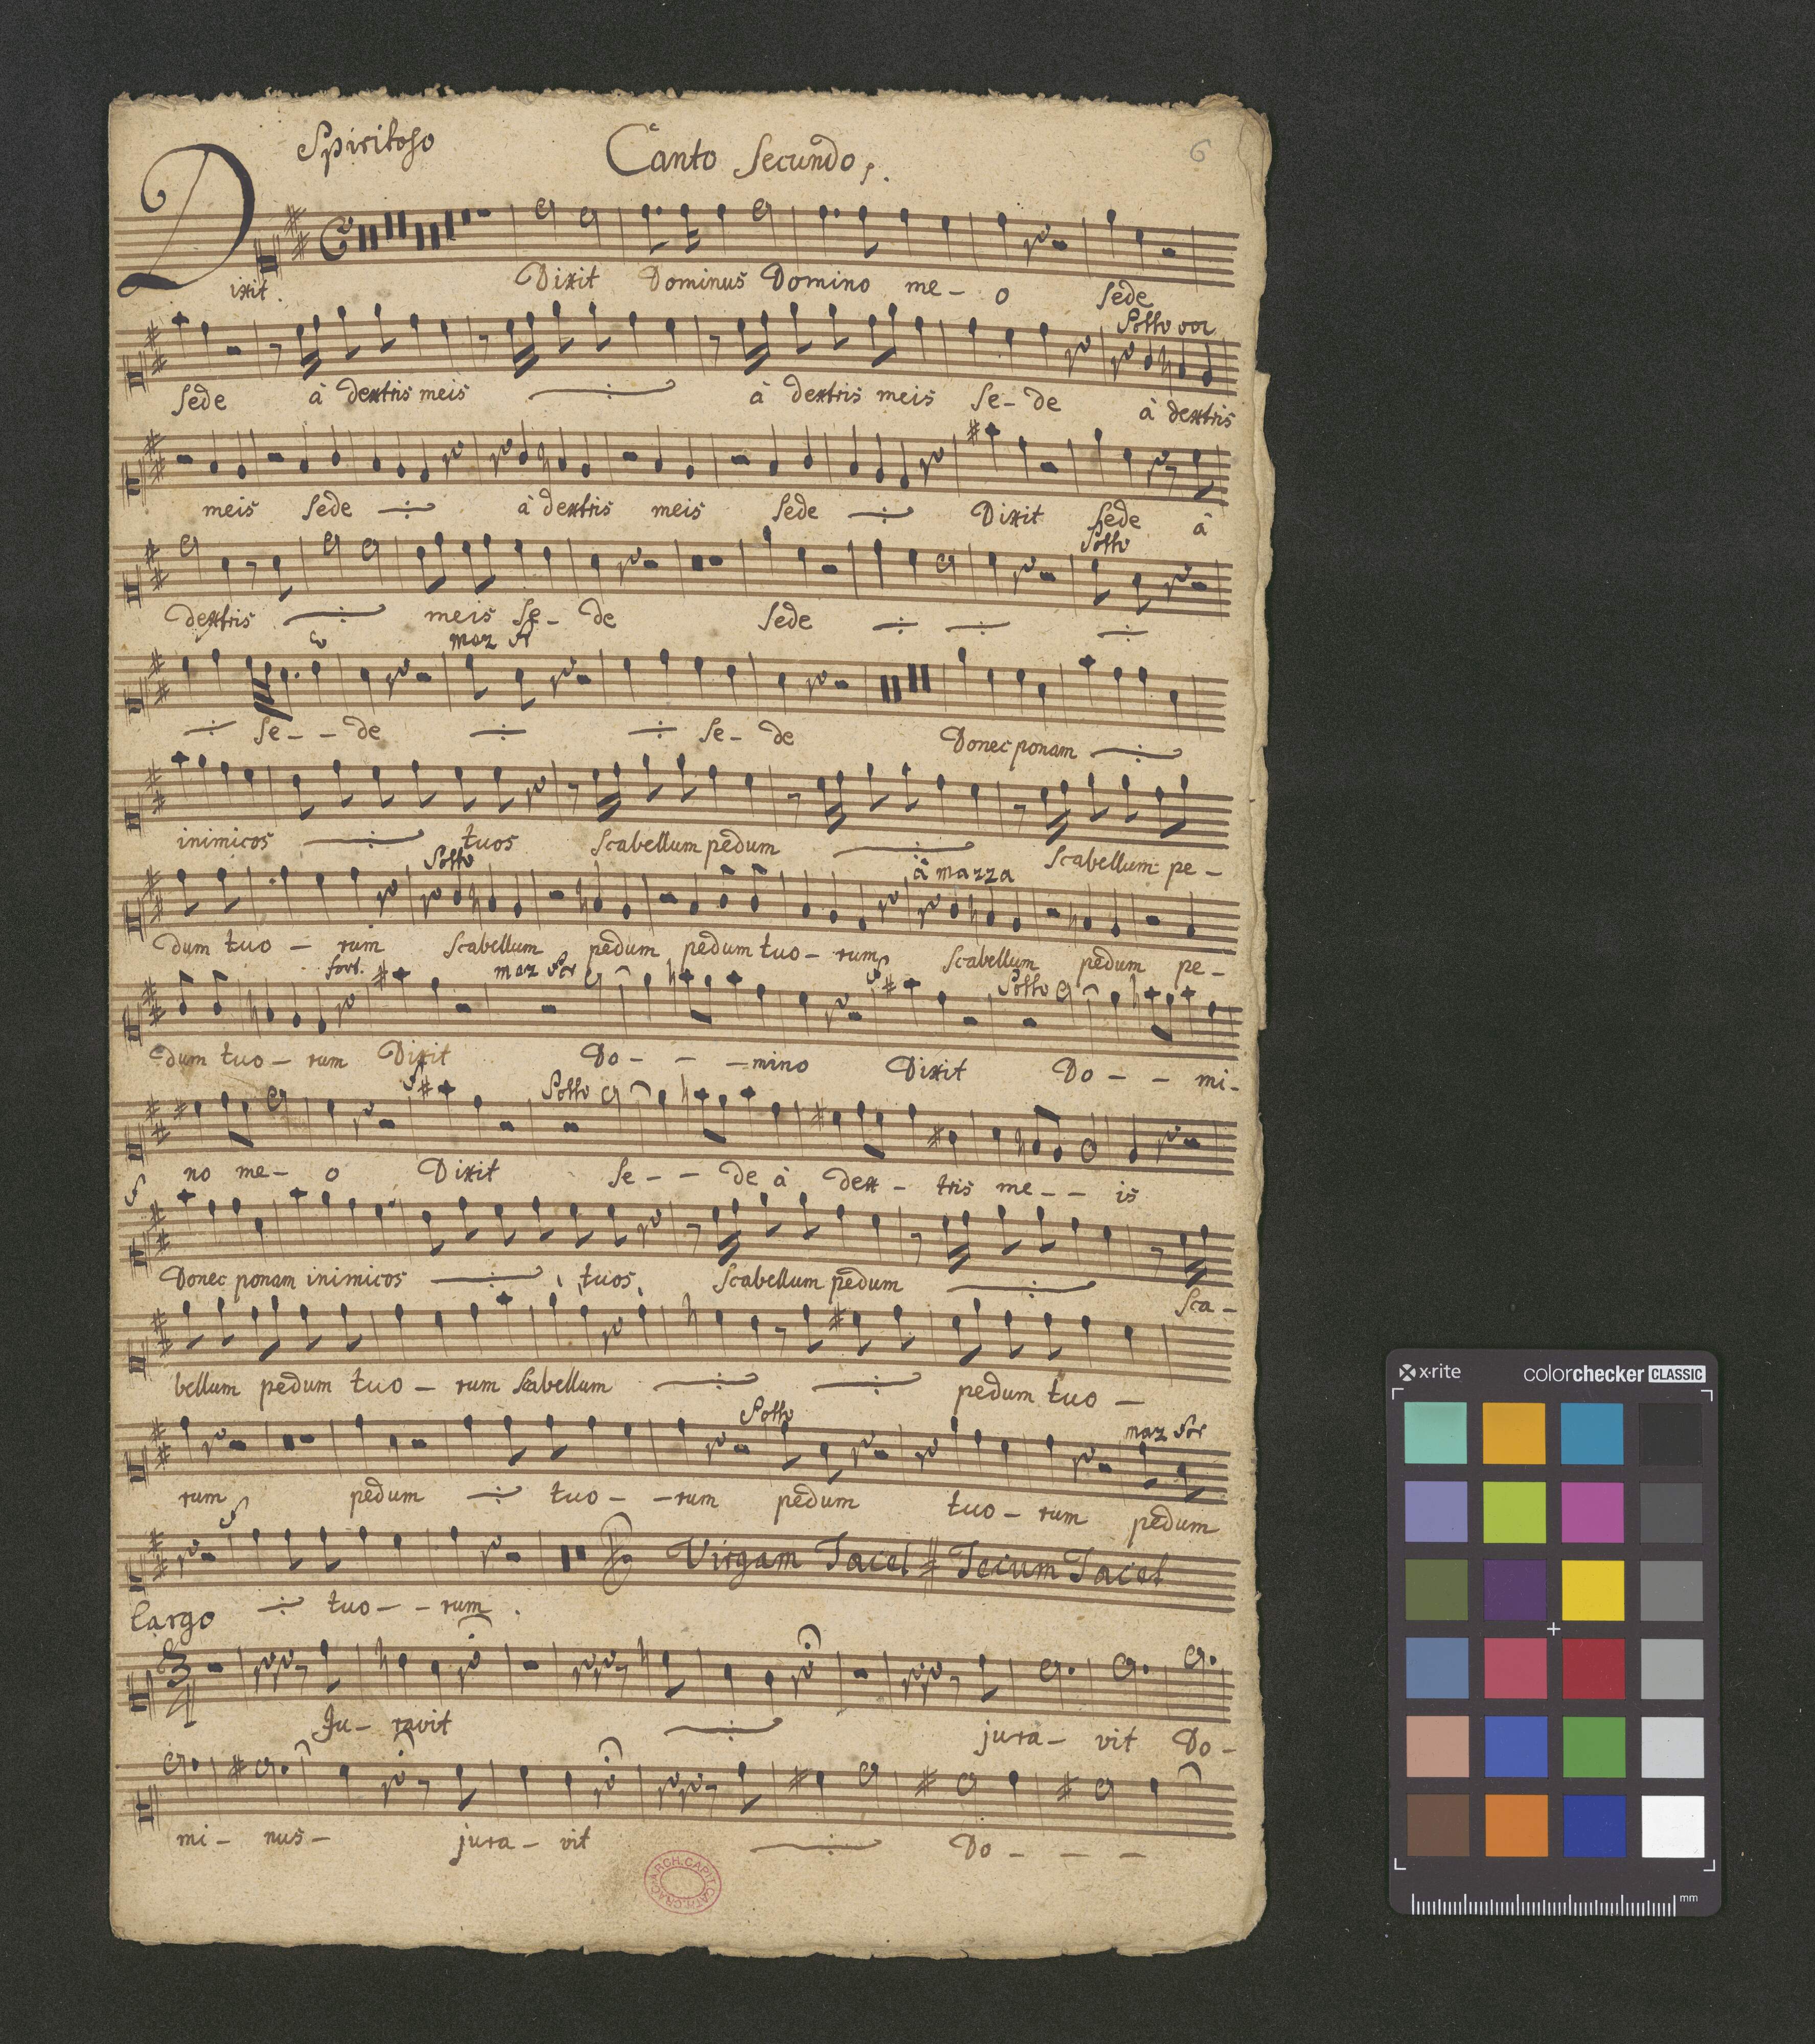 Spiritoso Canto Secundo
6
Dixit. Dixit Dominus Domino me - o sede
Sotto voc
sede à dextris meis à dextris meis se - de à dextris
meis sede à dextris meis sede Dixit sede à
Sotto
dextris meis se - de sede
maz
se - - de se - de Donec ponam
inimicos tuos scabellum pedum scabellum pe -
Sotto à mazza
dum tuo - rum scabellum pedum pedum tuo - rum scabellum pedum pe -
fort. maz for Sotto
dum tuo - rum Dixit Do - - - mino Dixit Do - - mi -
Sotto
no me - o Dixit se - - de à dex - tris me - - is
Donec ponam inimicos tuos scabellum pedum sca -
bellum pedum tuo - rum scabellum pedum tuo -
Sotto maz for
rum pedum tuo - - rum pedum tuo - rum pedum
Virgam Tacet Tecum Tacet
tuo - - rum.
Largo
Ju - ravit jura - vit Do -
mi - nus - jura - vit Do - - -
ARCH. CAPIT. CATH. CRAC
x-rite colorchecker CLASSIC
mm